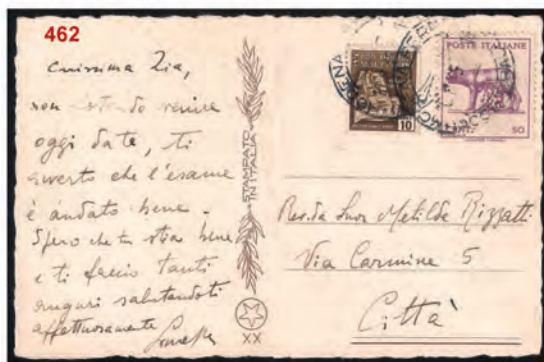 462
carissima Zia,
non potendo venire
oggi date, ti
avverto che l'esame
è andato bene.
Spero che tu stia bene
e ti faccio tanti
auguri salutandoti
affettuosamente
STAMPATO
IN ITALIA
XX
10
POSTE ITALIANE
50
Rev.da Suor Metilde Rizzatti
Via Carmine 5
Città